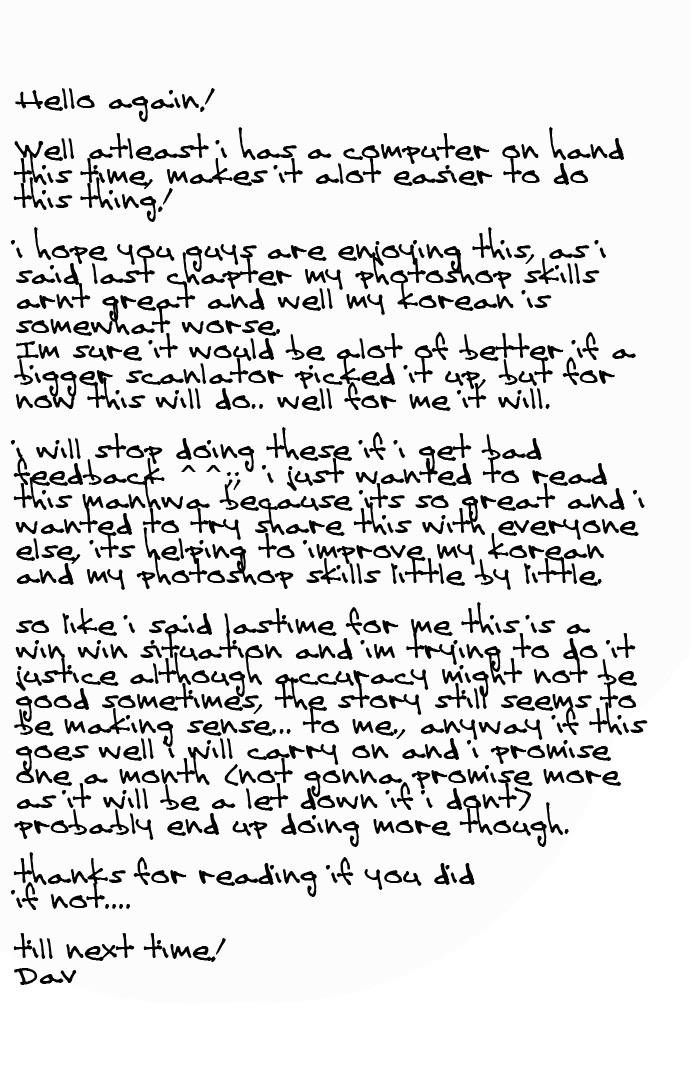 Hello again!
Well atleast i has a computer on hand
this time, makes it alot easier to do
this thing!
i hope you guys are enjoying this, as i
said last chapter my photoshop skills
arnt great and well my korean is
somewhat worse.
Im sure it would be alot of better if a
bigger scanlator picked it up, but for
now this will do.. well for me it will.
i will stop doing these if i get bad
feedback ^^;; i just wanted to read
this manhwa because its so great and i
wanted to try share this with everyone
else, its helping to improve my korean
and my photoshop skills little by little.
so like i said lastime for me this is a
win win situation and im trying to do it
justice although accuracy might not be
good sometimes, the story still seems to
be making sense... to me., anyway if this
goes well i will carry on and i promise
one a month (not gonna promise more
as it will be a let down if i dont)
probably end up doing more though.
thanks for reading if you did
if not....
till next time!
Dav